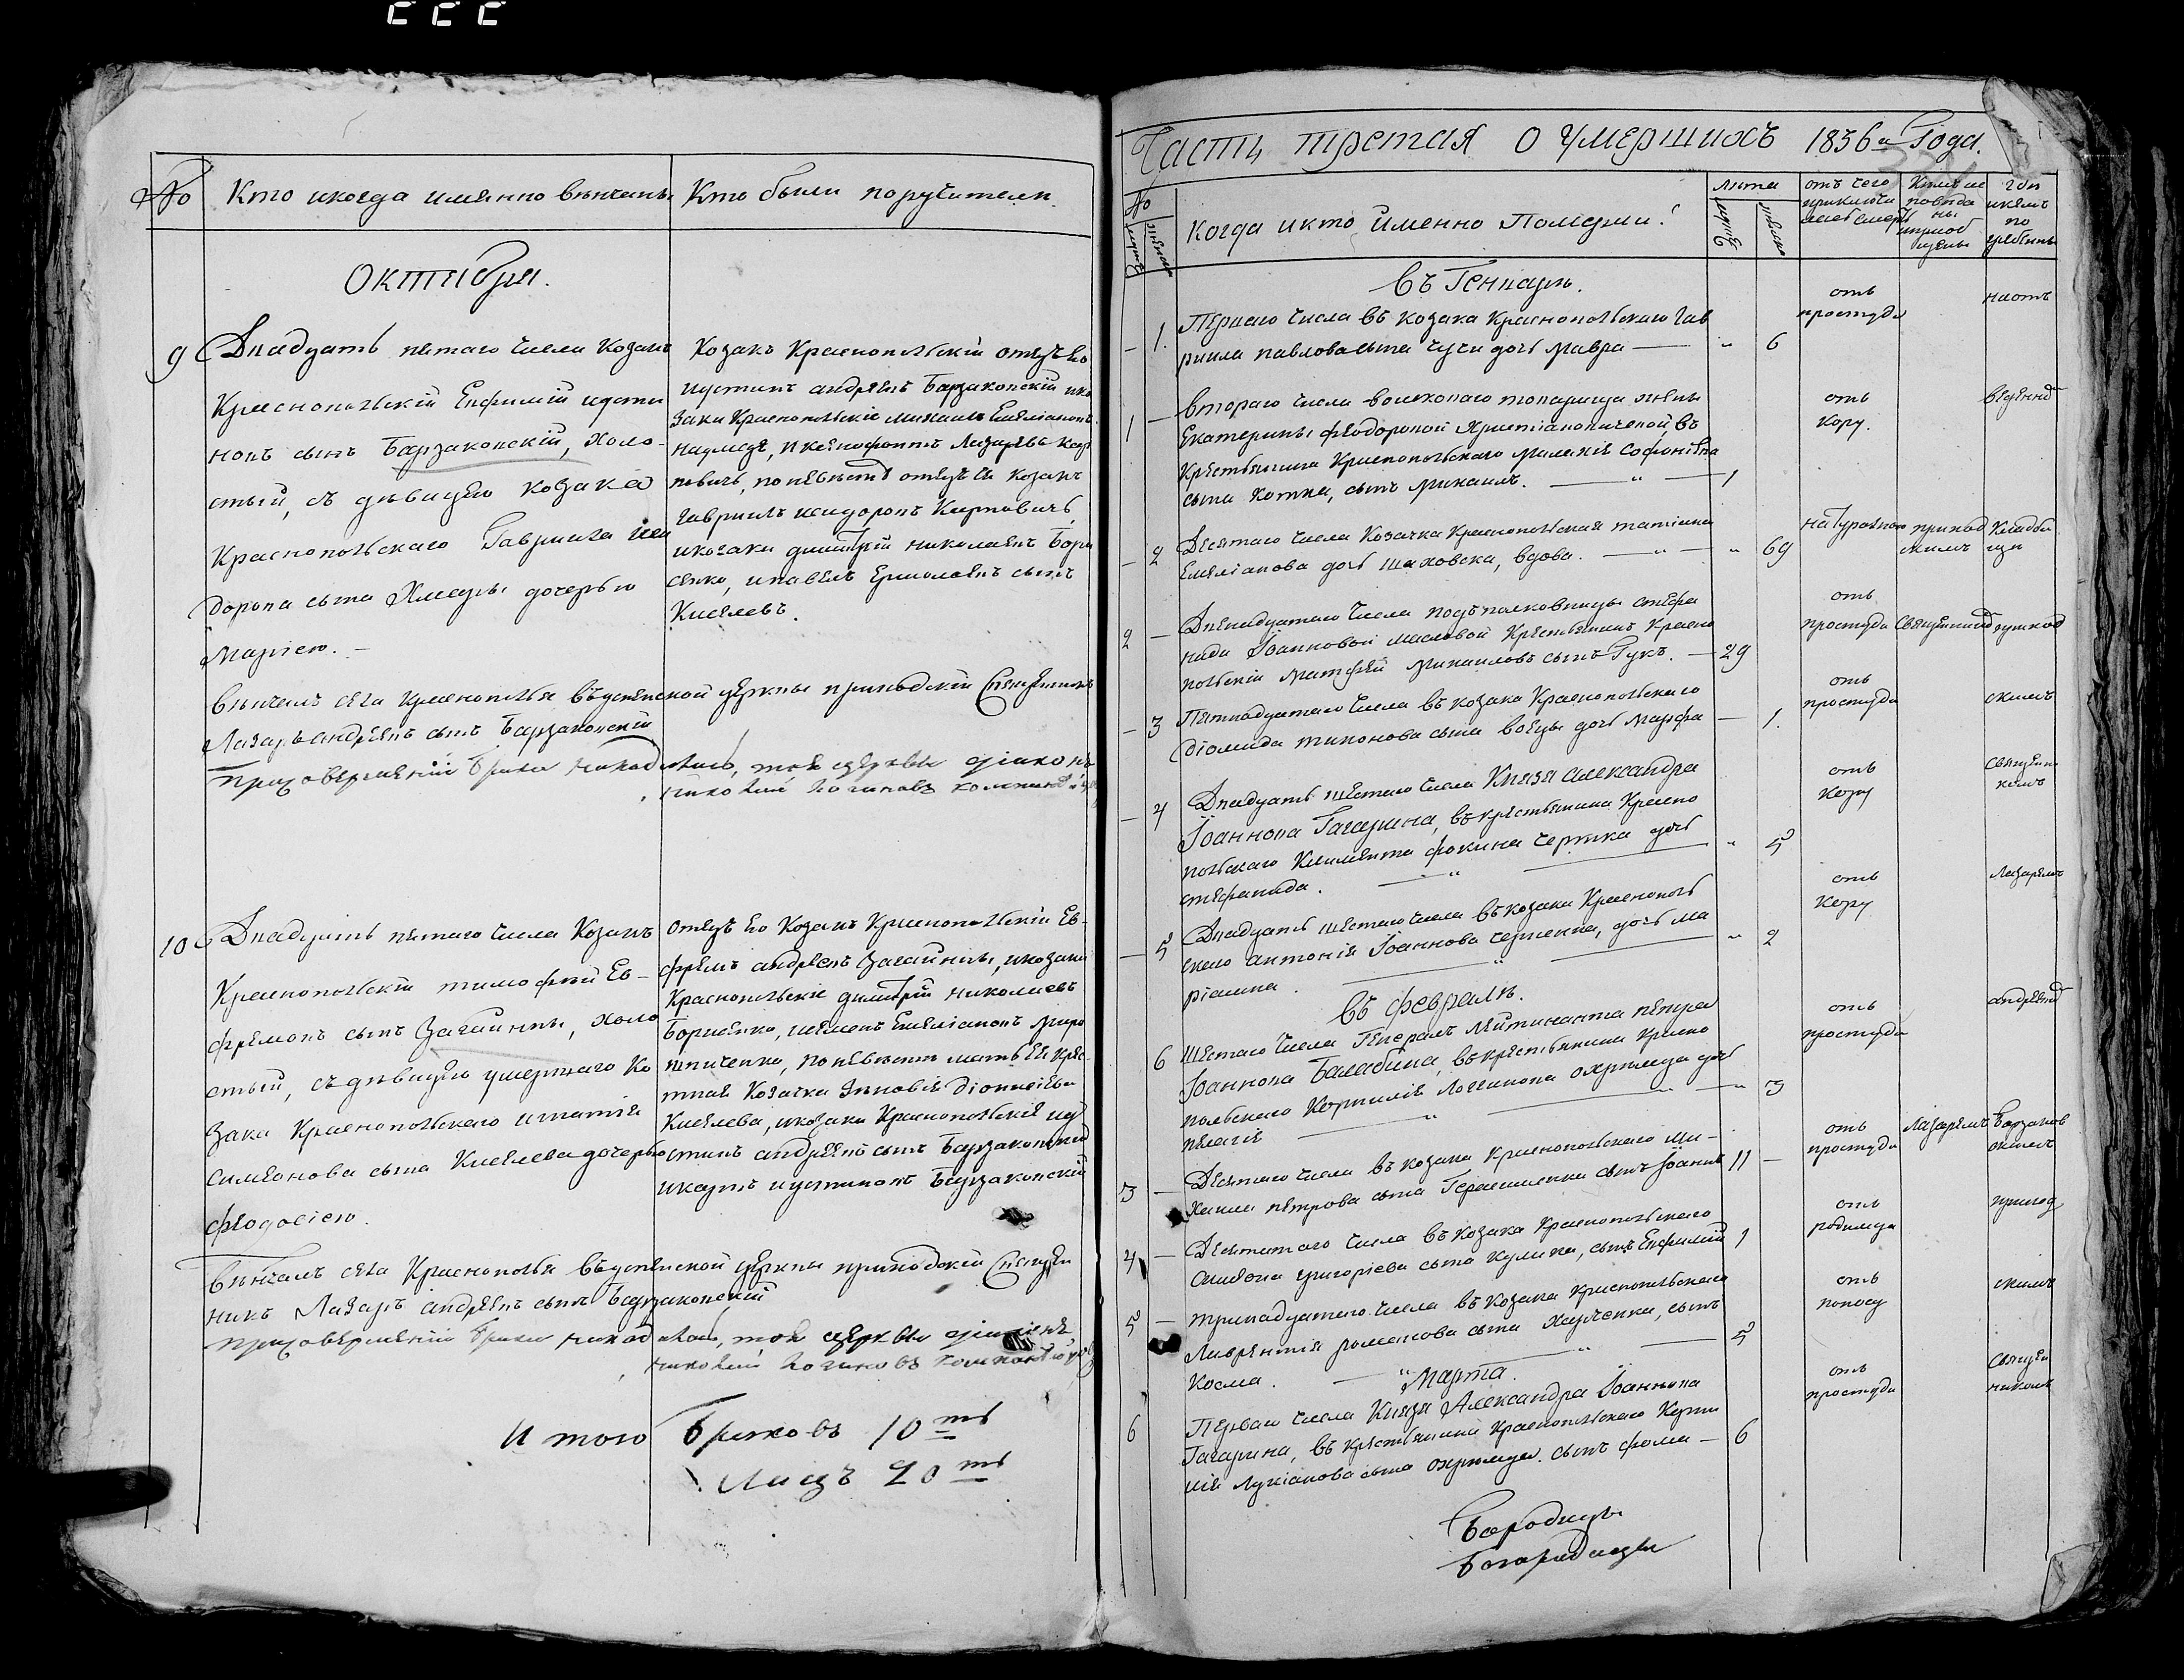 № Кто и когда именно вѣнчаны Кто были поручители
Октября.
9 Двадцать пятаго числа Козакъ
Краснопольскій Евфимій иусти
новъ сынъ Барзаковскій, холо-
стый, съ дѣвицею козака
Краснопольскаго Гавриила иси
дорова сына Хмелы дочерью
Маріею. —
Козакъ Краснопольскій отецъ Его
иустинъ андреевъ Барзаковскій и ко
заки Краснопольскіе Михаилъ Емеліановъ
и Ксенофонтъ Лазаревъ
по невѣстѣ отецъ Ея Козакъ
Гавріилъ исидоровъ
и козаки димитрій николаевъ Бори
сенко, и павелъ Ермолаевъ сынъ
Киселевъ.
Вѣнчалъ села Краснополья въ успенской церквы приходскій Священникъ
Лазаръ андреевъ сынъ Барзаковскій
При совершеніи Брака находились, той церкви діаконъ
николай логиновъ
10 Двадцать пятаго числа Козакъ
Краснопольскій тимофей Ев-
фремовъ сынъ Загайный, холо
стый, съ дѣвицею умершаго Ко
зака Краснопольскаго игнатія
Симеонова сына Киселева дочерью
феодосіею.
отецъ Его Козакъ Краснопольскій Ев-
фремъ андреевъ Загайный, и козаки
Краснопольскіе димитрій николаевъ
Борисенко, и семенъ Емеліановъ Миро
шниченко, по невѣстѣ мать Ея
Козачка Зиновія діонисіева
Киселева, и козаки Краснопольскіе иу
стинъ андреевъ сынъ Барзаковскій
и карпъ иустиновъ Барзаковскій
Вѣнчалъ села Краснополья въ успенской церквы приходскій Священ
никъ Лазаръ андреевъ сынъ Барзаковскій
При совершеніи Брака находились, той церквы діаконъ
николай логиновъ
И того Браковъ 10ть
Лицъ 20ть
Часть третая о умершихъ 1836го Года.
№ когда и кто именно Померли? лѣта отъ чего приключи лась смерть Кѣмъ ис повѣда ны и приоб щены гдѣ и кемъ по гребены
въ Генварѣ.
— 1. Перваго числа въ козака Краснопольскаго Гав
риила павлова сына дочь Мавра — " 6 отъ простуды
1 — втораго числа войсковаго товарища жены
Екатерины феодоровой Христіановичевой, въ
Крестьянина Краснопольскаго Малахія Софоніева
сына Котка, сынъ Михаилъ. — " — 1 отъ кору.
— 2 Десятаго числа Козачка Краснопольская татіана
Емеліанова дочь Шаховска, вдова. — " — " 69 натурально приход скимъ Кладби щи
2 — Двенадцатаго числа подъполковницы стефа
ниды Іоанновой Масловой Крестьянинъ Красно
польскій Матфей Михаиловъ сынъ Гукъ. — 29 отъ простуды Священникомъ
— 3 Пятнадцатаго числа въ козака Краснопольскаго
діомида тихонова сына дочь Марфа — 1. отъ простуды скимъ
— 4 Двадцать шестаго числа Князя александра
Іоаннова Гагарина, въ крестьянина Красно
польскаго Климента фокина Чертка дочь
стефанида. — " — " 5 отъ кору Священи комъ
— 5 Двадцать шестаго числа въ козака Краснополь
скаго антонія Іоаннова дочь Ма
ріамна. — " — " 2 отъ кору Лазаремъ
въ февралѣ.
6 Шестаго числа Генералъ Лейтинанта петра
Іоаннова Балабина, въ крестьянина Красно
польскаго Корнилія Логвинова Охримца дочь
пелагія — " — " 3 отъ простуды андреевымъ
3 — Десятаго числа въ козака Краснопольскаго Ми-
хаила петрова сына Герасименка сынъ Іоаннъ 11 — отъ простуды Лазаремъ Барзаков скимъ
4 — Девятаго числа въ козака Краснопольскаго
симеона григоріева сына Кулика, сынъ Евфимій 1 отъ родимца приход
5 — тринадцатаго числа въ козака Краснопольскаго
Лаврентія романова сына Харченка, сынъ
Косма. — " — 5 отъ поносу скимъ
Марта.
6 Перваго числа Князя Александра Іоаннова
Гагарина, въ крестьянина Краснопольскаго Корни
лія Лукіанова сына Охримца сынъ фома — 6 отъ простуды Священ никомъ